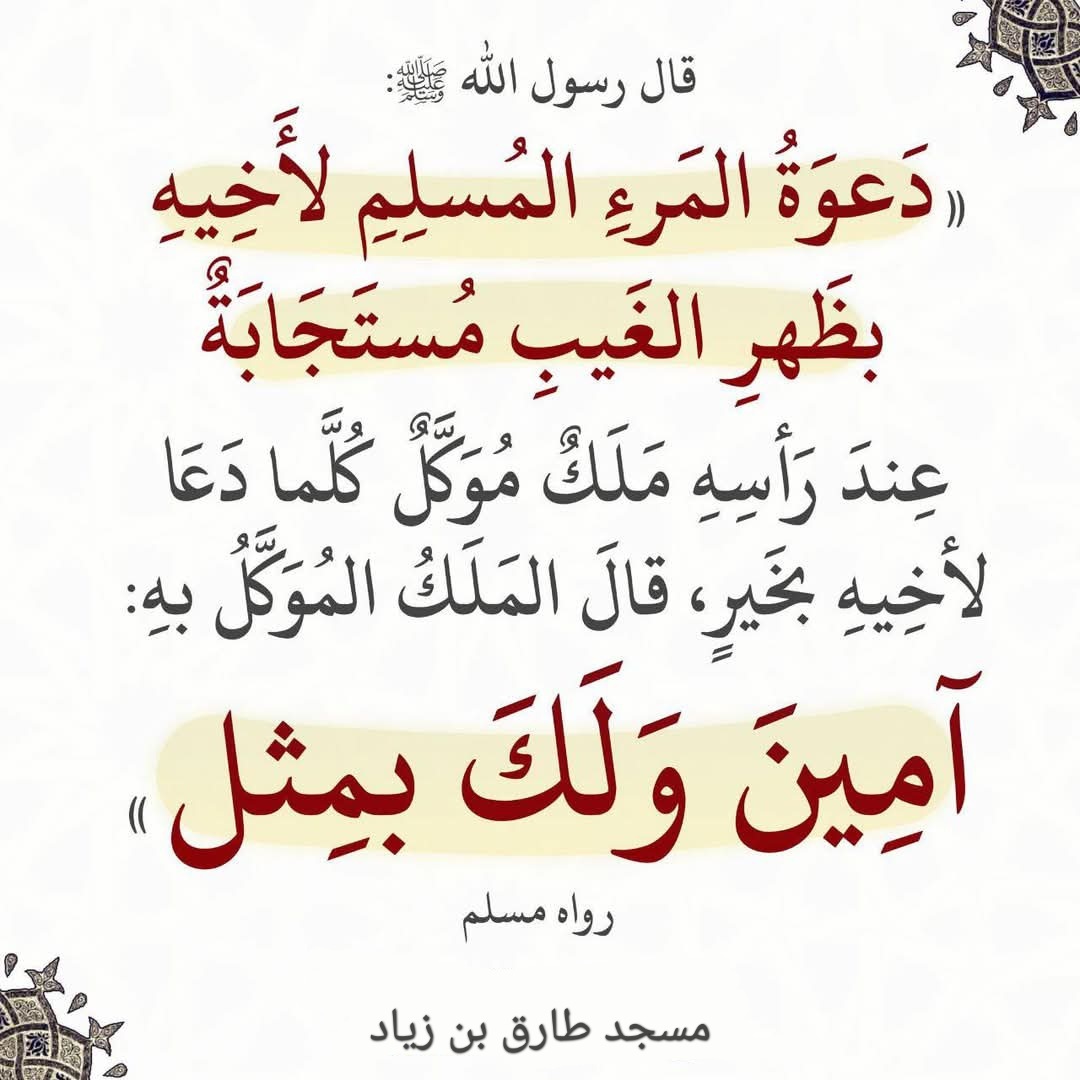 قال رسول الله ﷺ:
«دَعوَةُ المَرءِ المُسلِمِ لأَخِيهِ
بظَهرِ الغَيبِ مُستَجَابَةٌ
عِندَ رَأسِهِ مَلَكٌ مُوَكَّلٌ كُلَّما دَعَا
لأخِيهِ بخَيرٍ، قالَ المَلَكُ المُوَكَّلُ بهِ:
آمِينَ وَلَكَ بمِثل»
رواه مسلم
مسجد طارق بن زياد